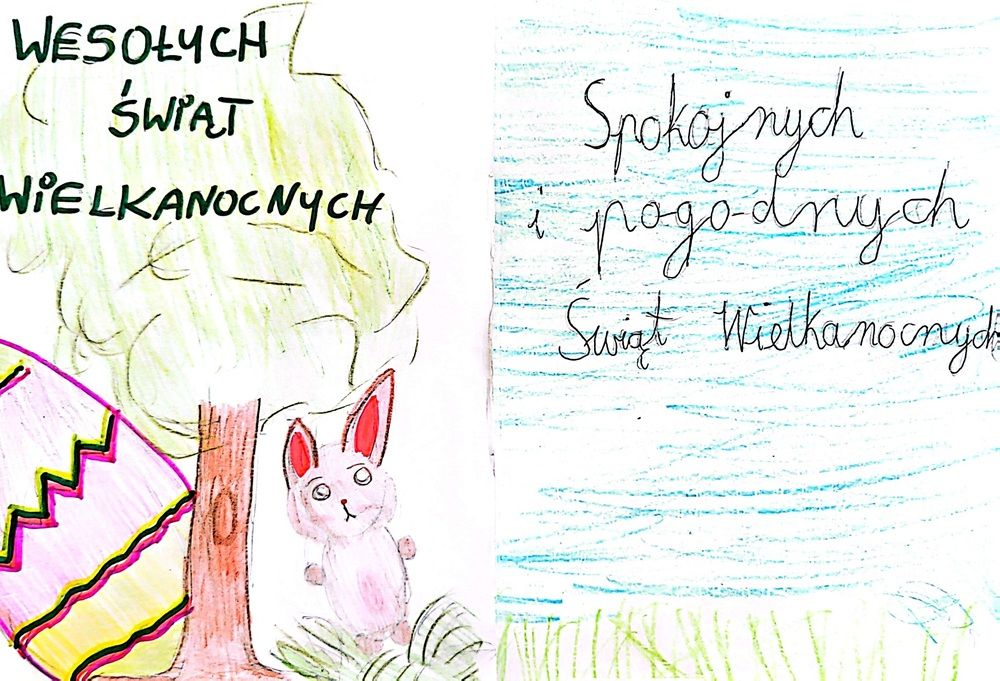 WESOŁYCH
ŚWIĄT
WIELKANOCNYCH
Spokojnych
i pogodnych
Świąt Wielkanocnych